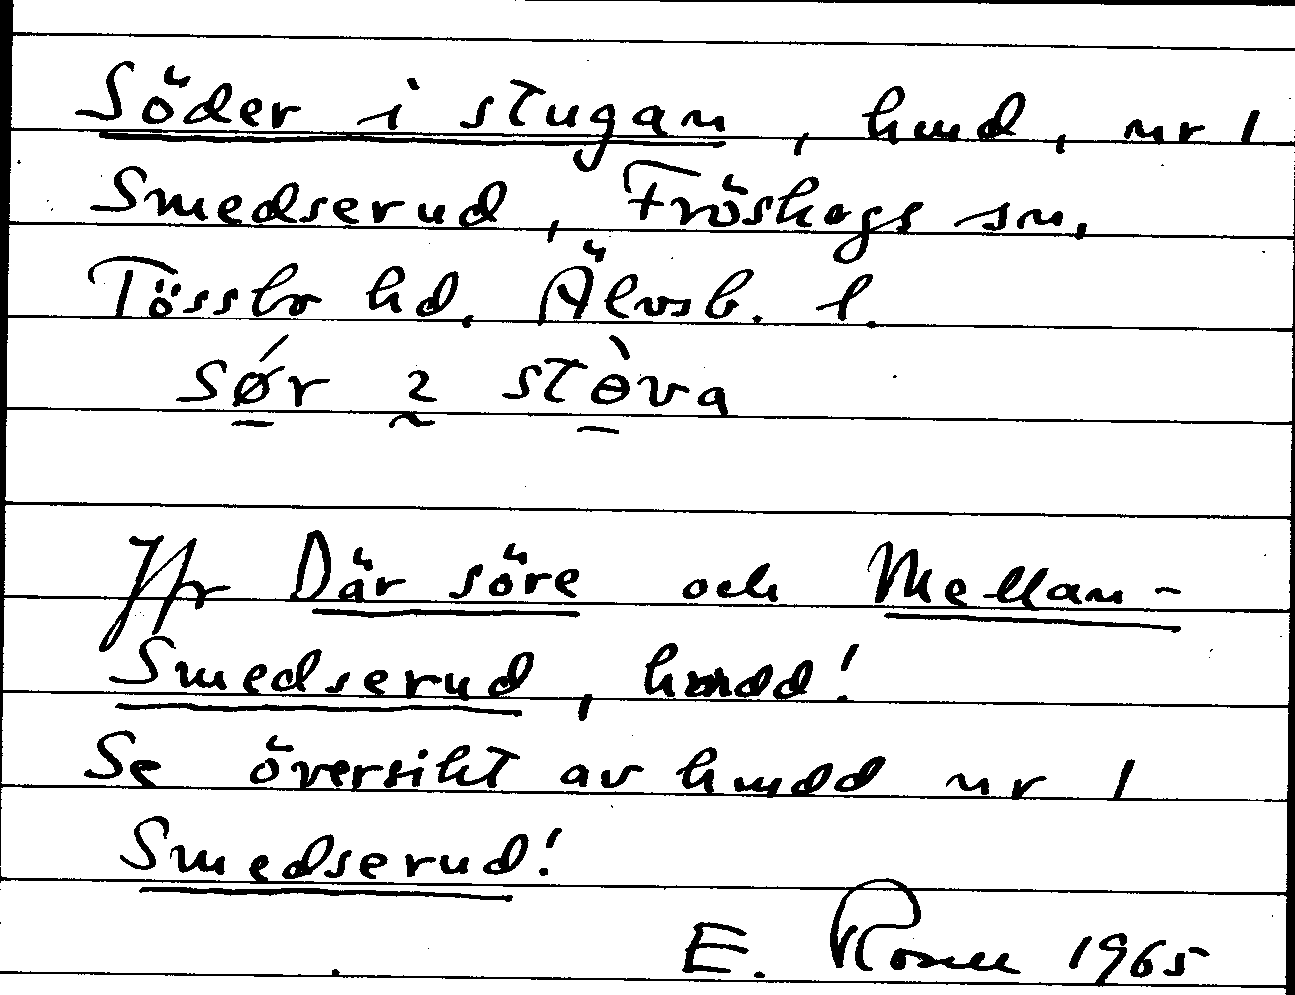 Söder i stugan, hmd, nr 1
Smedserud, Fröskogs sn,
Tössbo hd. Älvsb. l.
sǿr 2 stɵ̀va
Jfr Där söre och Mellan-
Smedserud, hmdd!
Se översikt av hmdd nr 1
Smedserud!
E. 1965